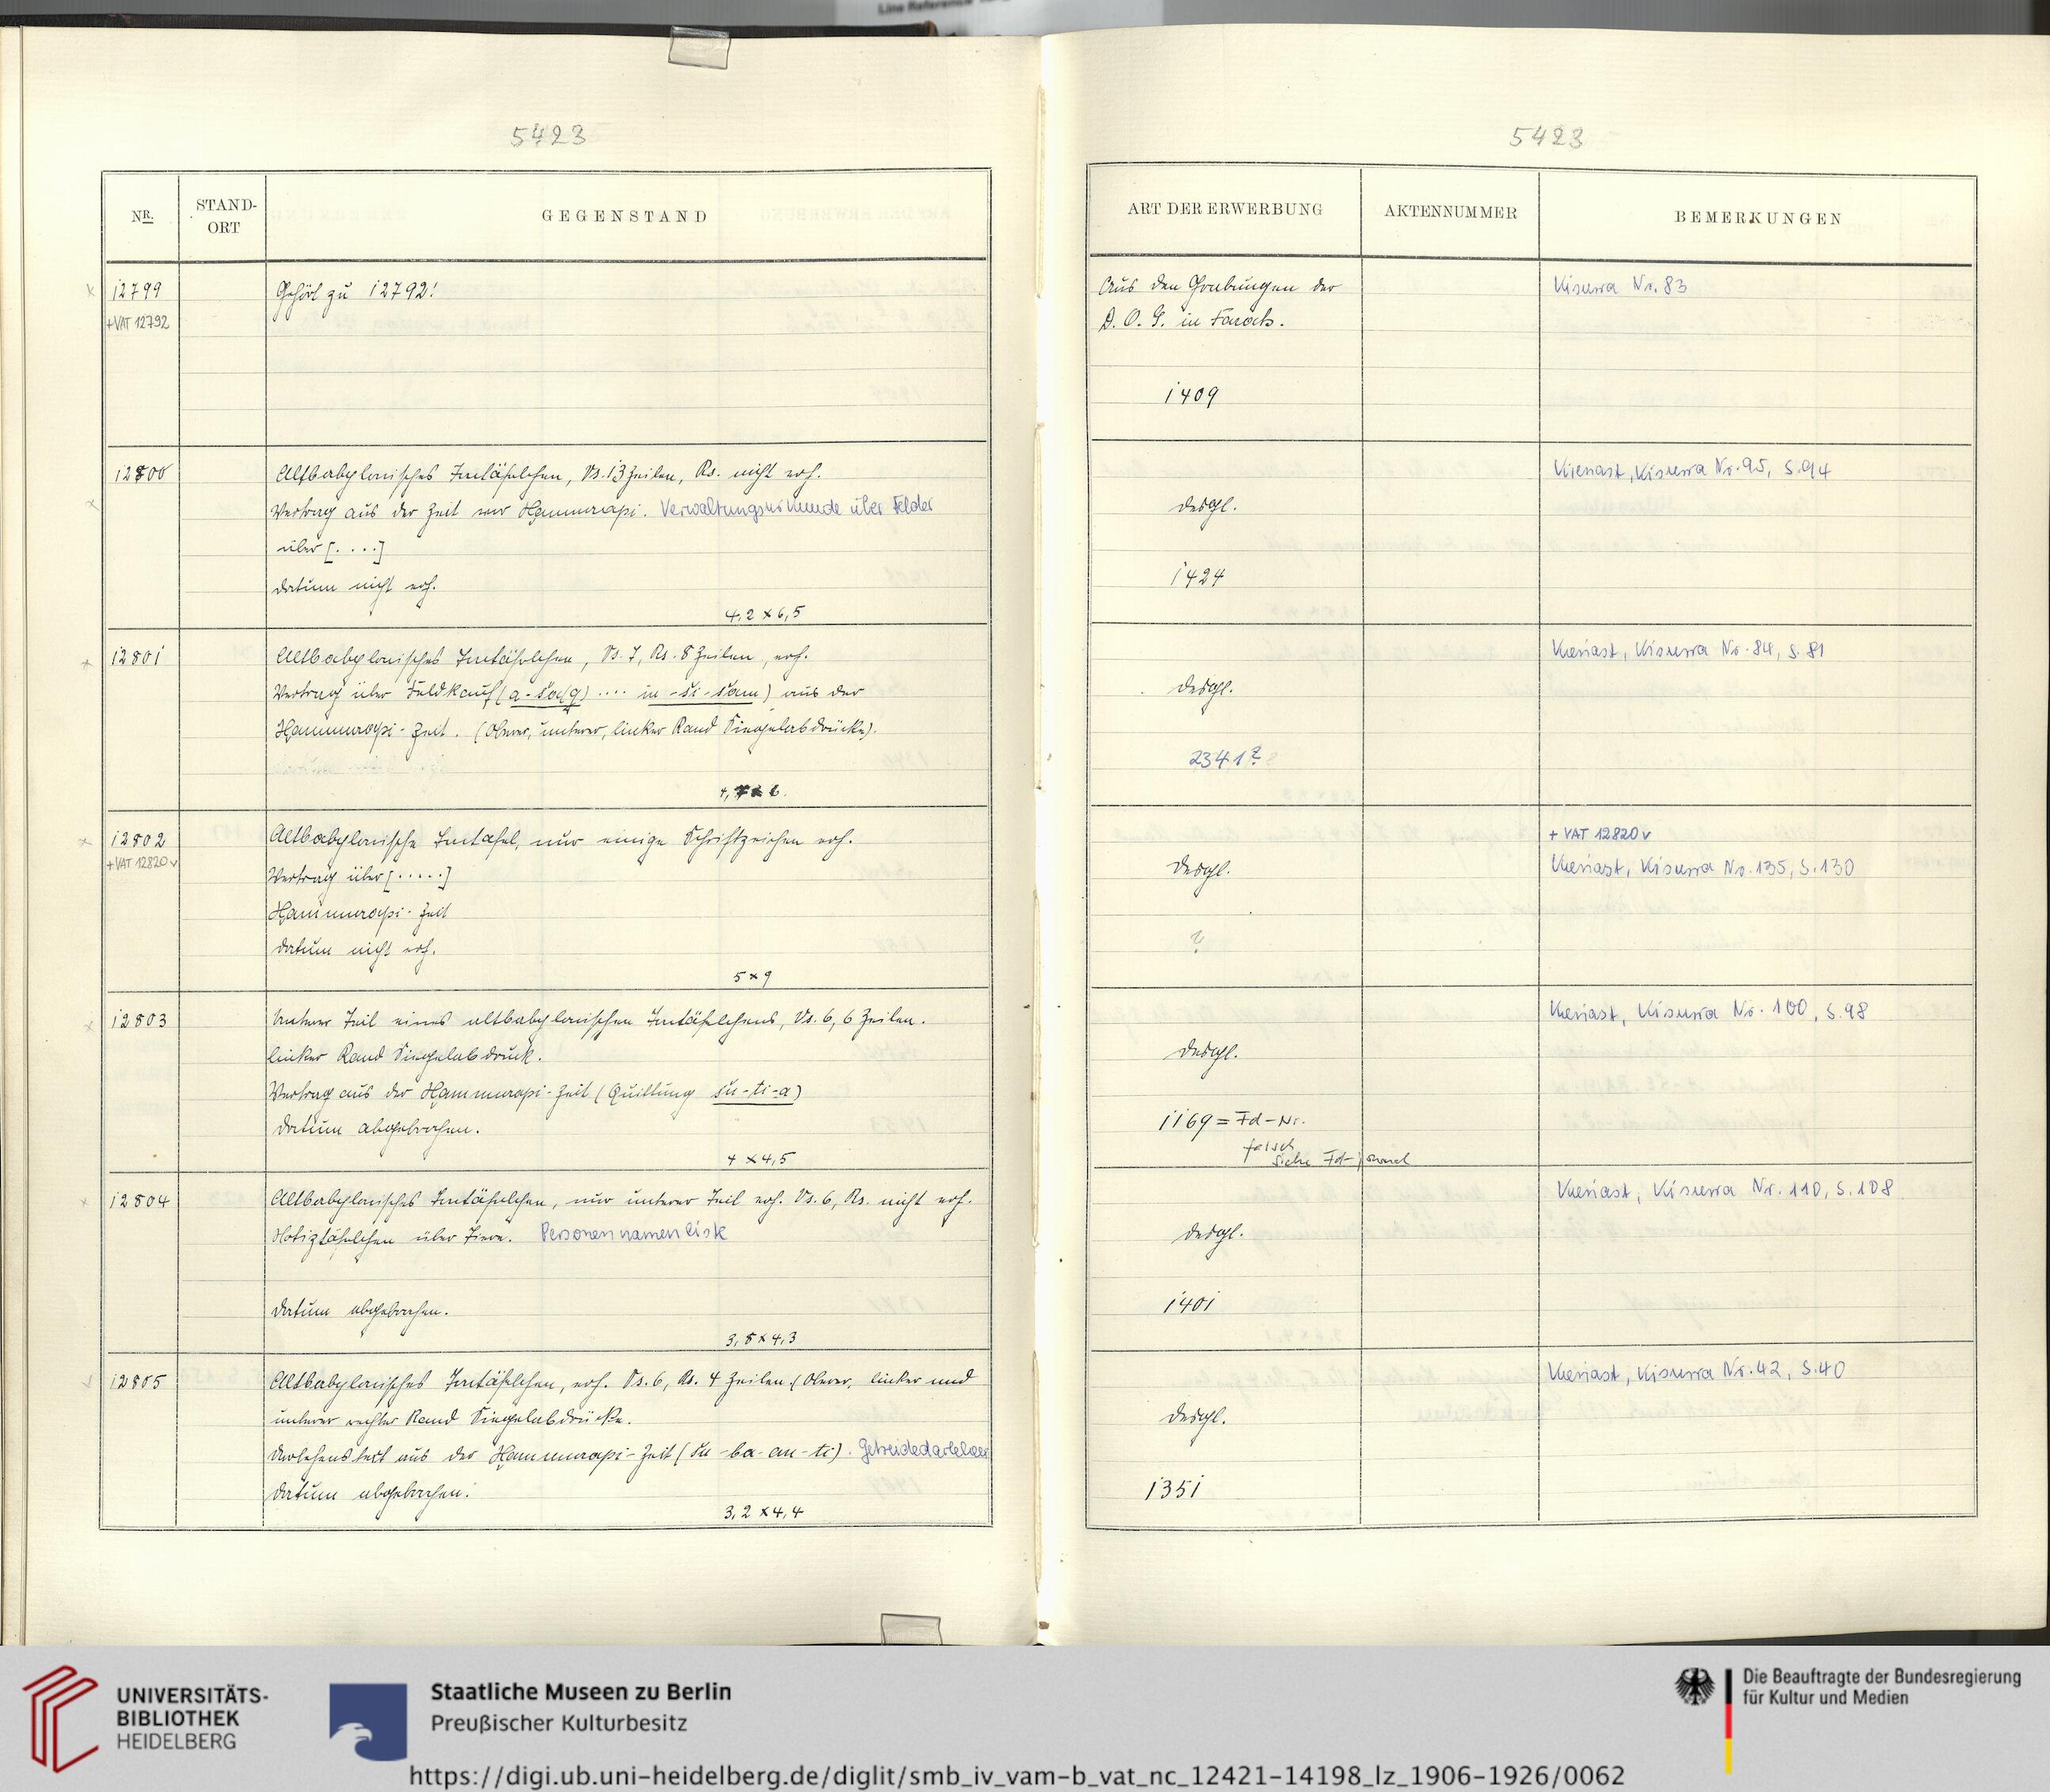 5423
NR.
STAND-
ORT
GEGENSTAND
12799
+VAT 12792
Gehört zu 12792!
12800
Altbabylonisches Tontäfelchen, Vs. 13 Zeilen, Rs. nicht erh.
Vertrag aus der Zeit vor Hammurapi. Verwaltungsurkunde über Felder
über [. . . .]
Datum nicht erh.
4,2 x 6,5
12801
Altbabylonisches Tontäfelchen, Vs. 7, Rs. 8 Zeilen, erh.
Vertrag über Feldkauf (a-šag) .... in-ši-šam) aus der
Hammurapi-Zeit. (Oberer, unterer, linker Rand Siegelabdrücke).
12802
+VAT 12820v
Altbabylonische Tontafel, nur einige Schriftzeichen erh.
Vertrag über [.....]
Hammurapi-Zeit
Datum nicht erh.
5 x 9
12803
Unterer Teil eines altbabylonischen Tontäfelchens, Vs. 6, 6 Zeilen.
linker Rand Siegelabdruck.
Vertrag aus der Hammurapi-Zeit (Quittung šu-ti-a)
Datum abgebrochen.
4 x 4,5
12804
Altbabylonisches Tontäfelchen, nur unterer Teil erh. Vs. 6, Rs. nicht erh.
Notiztäfelchen über Tiere. Personennamenliste
Datum abgebrochen.
3,8 x 4,3
12805
Altbabylonisches Tontäfelchen, erh. Vs. 6, Rs. 4 Zeilen. (Oberer, linker und
unterer rechter Rand Siegelabdrücke.
Darlehenstext aus der Hammurapi-Zeit (šu-ba-an-ti). Getreidedarlehen
Datum abgebrochen.
3,2 x 4,4
5423
ART DER ERWERBUNG
AKTENNUMMER
BEMERKUNGEN
Aus den Grabungen der
D. O. G. in Farach.
1409
Kisurra Nr. 83
desgl.
1424
Kienast, Kisurra Nr. 95, S. 94
desgl.
2341?
Kienast, Kisurra Nr. 84, S. 81
desgl.
?
+ VAT 12820v
Kienast, Kisurra Nr. 135, S. 130
desgl.
1169 = Fd-Nr.
falsch
siehe Fd-
Kienast, Kisurra Nr. 100, S. 98
desgl.
1401
Kienast, Kisurra Nr. 110, S. 108
desgl.
1351
Kienast, Kisurra Nr. 42, S. 40
UNIVERSITÄTS-
BIBLIOTHEK
HEIDELBERG
Staatliche Museen zu Berlin
Preußischer Kulturbesitz
Die Beauftragte der Bundesregierung
für Kultur und Medien
https://digi.ub.uni-heidelberg.de/diglit/smb_iv_vam-b_vat_nc_12421-14198_lz_1906-1926/0062